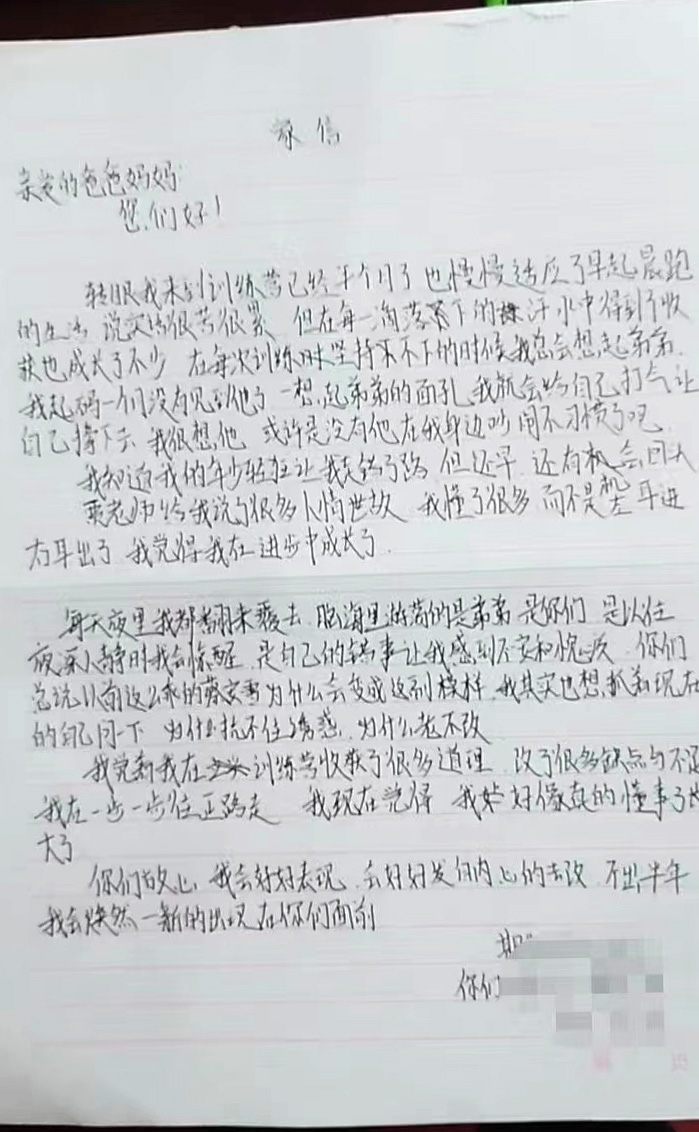 家信
亲爱的爸爸妈妈:
您们好!
转眼我来到训练营已经半个月了 也慢慢适应了早起晨跑
的生活 说实话很苦很累 但在每一滴落下的汗水中得到了收
获也成长了不少 在每次训练时坚持不下的时候我总会想起弟弟
我起码一个月没有见到他了 一想起弟弟的面孔 我就会给自己打气让
自己撑下去 我很想他 或许是没有他在我身边吵闹不习惯了吧
我知道我的年少轻狂让我走错了路 但还早 还有机会回头
老师给我说了很多人情世故 我懂了很多 而不是 耳进
右耳出了 我觉得我在进步中成长了
每天夜里我都翻来覆去 脑海里 的是弟弟 是你们 是以往
夜深人静时我会惊醒 是自己的错事让我感到不安和愧疚 你们
总说以前这么乖的 为什么会变成这副模样 我其实也想抓着现在
的自己问一下 为什么抗不住诱惑 为什么老不改
我觉着我在训练营收获了很多道理 改了很多缺点与不足
我在一步一步往正路走 我现在觉得 我 好像真的懂事了长
大了
你们放心 我会好好表现 会好好发自内心的去改 不出半年
我会焕然一新的出现在你们面前
你们